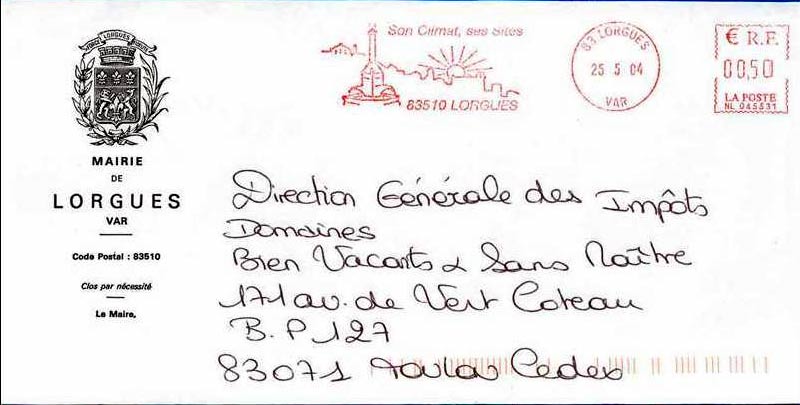 LORGUES
MAIRIE
DE
LORGUES
VAR
Code Postal : 83510
Clos par nécessité
Le Maire,
Son Climat, ses Sites
83510 LORGUES
83 LORGUES
25 5 04
VAR
€ R.F.
00,50
LA POSTE
NL 045531
Direction Générale des Impôts
Domaines
Bien Vacants & Sans Maître
171 av. de Vert Coteau
B.P 127
83071 Toulon Cedex